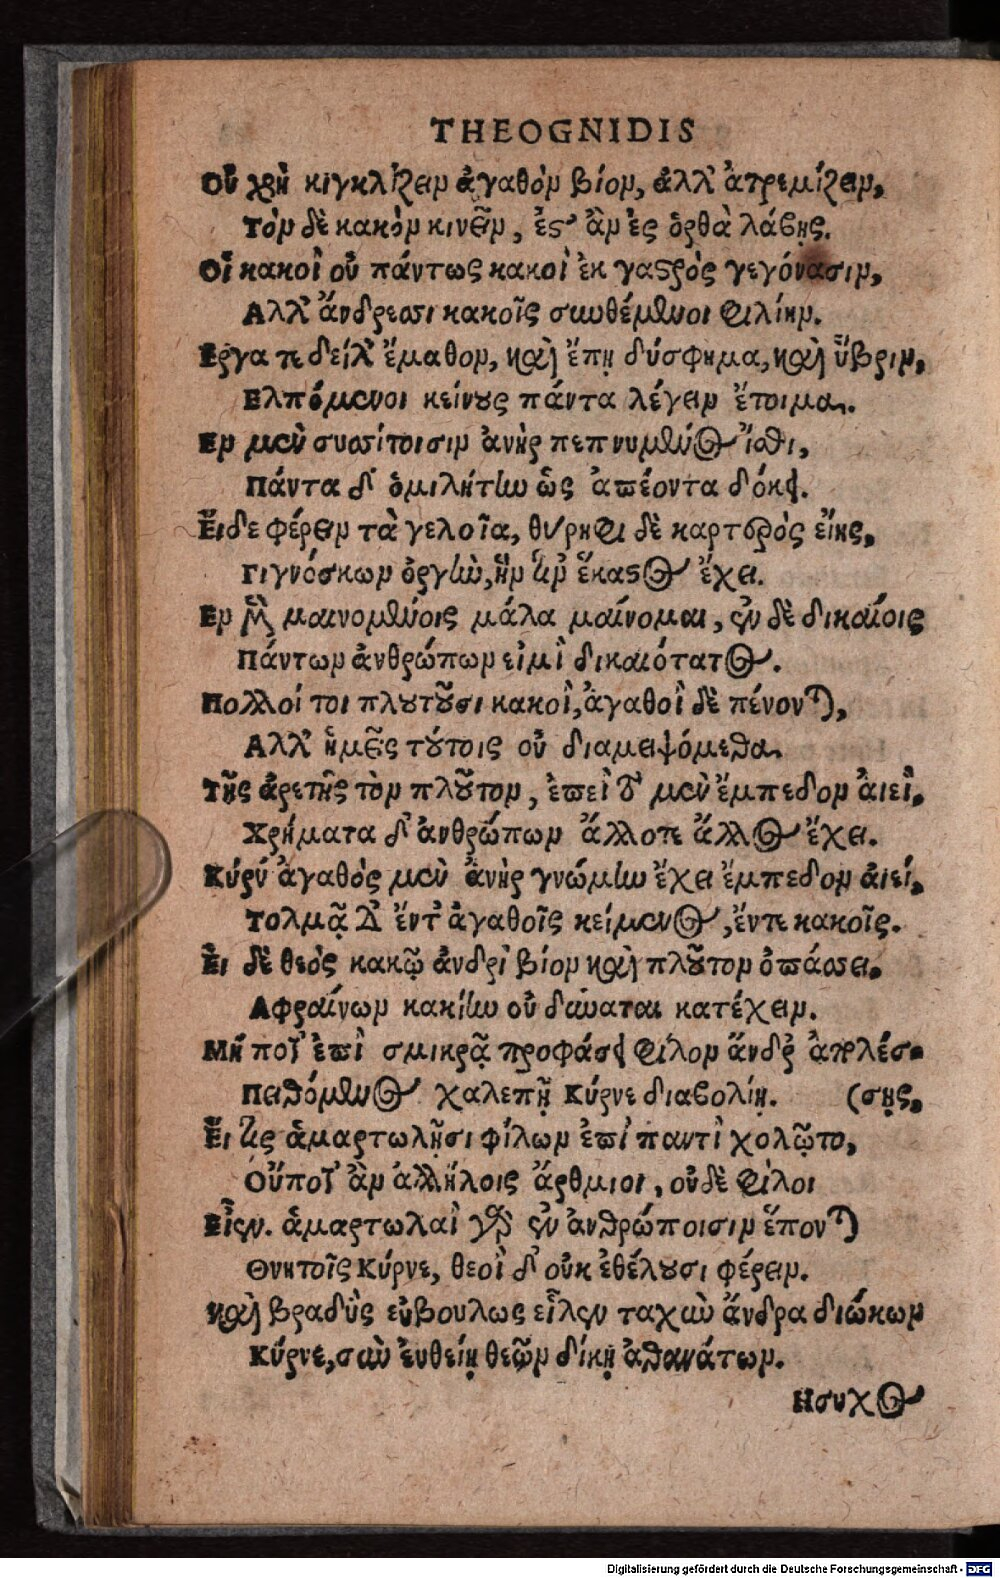 THEOGNIDIS
Οὐ χρὴ κιγκλίζειν ἀγαθὸν βίον, ἀλλ' ἀτρεμίζειν,
Τὸν δὲ κακὸν κινεῖν, ἔστ' ἂν ἐς ὀρθὰ λάβῃς.
Οἱ κακοὶ οὐ πάντως κακοὶ ἐκ γαστρὸς γεγόνασιν,
Αλλ' ἄνδρεσσι κακοῖς συνθέμενοι φιλίην.
Εργα τε δείλ' ἔμαθον, καὶ ἔπη δύσφημα, καὶ ὕβριν,
Ελπόμενοι κείνους πάντα λέγειν ἔτοιμα.
Εν μὲν συσσίτοισιν ἀνὴρ πεπνυμένος ἴσθι,
Πάντα δ' ὁμιλήτην ὡς ἀπέοντα δόκει.
Εἶδε φέρειν τὰ γελοῖα, θύρηφι δὲ καρτερὸς εἴης,
Γιγνόσκων ὀργὴν, ἣν τὶν ἕκαστος ἔχει.
Εν μὲν μαινομένοις μάλα μαίνομαι, ἐν δὲ δικαίοις
Πάντων ἀνθρώπων εἰμὶ δικαιότατος.
Πολλοί τοι πλουτοῦσι κακοὶ, ἀγαθοὶ δὲ πένονται,
Αλλ' ἡμεῖς τούτοις οὐ διαμειψόμεθα
Τῆς ἀρετῆς τὸν πλοῦτον, ἐπεὶ τὸ μὲν ἔμπεδον ἀιεὶ.
Χρήματα δ' ἀνθρώπων ἄλλοτε ἄλλος ἔχει.
Κύρν' ἀγαθὸς μὲν ἀνὴρ γνώμην ἔχει ἔμπεδον ἀιεί,
Τολμᾷ δ' ἔντ' ἀγαθοῖς κείμενος, ἔντε κακοῖς.
Εἰ δὲ θεὸς κακῷ ἀνδρὶ βίον καὶ πλοῦτον ὀπάσσει,
Αφραίνων κακίην οὐ δύναται κατέχειν.
Μή ποτ' ἐπὶ σμικρᾷ προφάσει φίλον ἄνδρ' ἀπολέσ-
Πειθόμενος χαλεπῇ Κύρνε διαβολίῃ. (σῃς,
Εἴ τις ἁμαρτωλῇσι φίλων ἐπὶ παντὶ χολῷτο,
Οὔποτ' ἂν ἀλλήλοις ἄρθμιοι, οὐδὲ φίλοι
Εἶεν. ἁμαρτωλαὶ γὰρ ἐν ἀνθρώποισιν ἕπονται
Θνητοῖς Κύρνε, θεοὶ δ' οὐκ ἐθέλουσι φέρειν.
καὶ βραδὺς εὔβουλως εἷλεν ταχὺν ἄνδρα διώκων
Κύρνε, σὺν ἐυθείῃ θεῶν δίκῃ ἀθανάτων.
Ησυχος
Digitalisierung gefördert durch die Deutsche Forschungsgemeinschaft - DFG